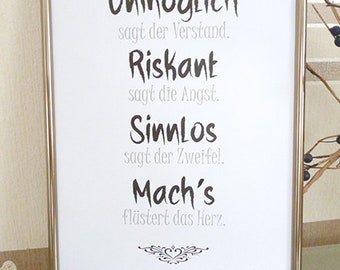 Unmöglich
sagt der Verstand.
Riskant
sagt die Angst.
Sinnlos
sagt der Zweifel.
Mach's
flüstert das Herz.